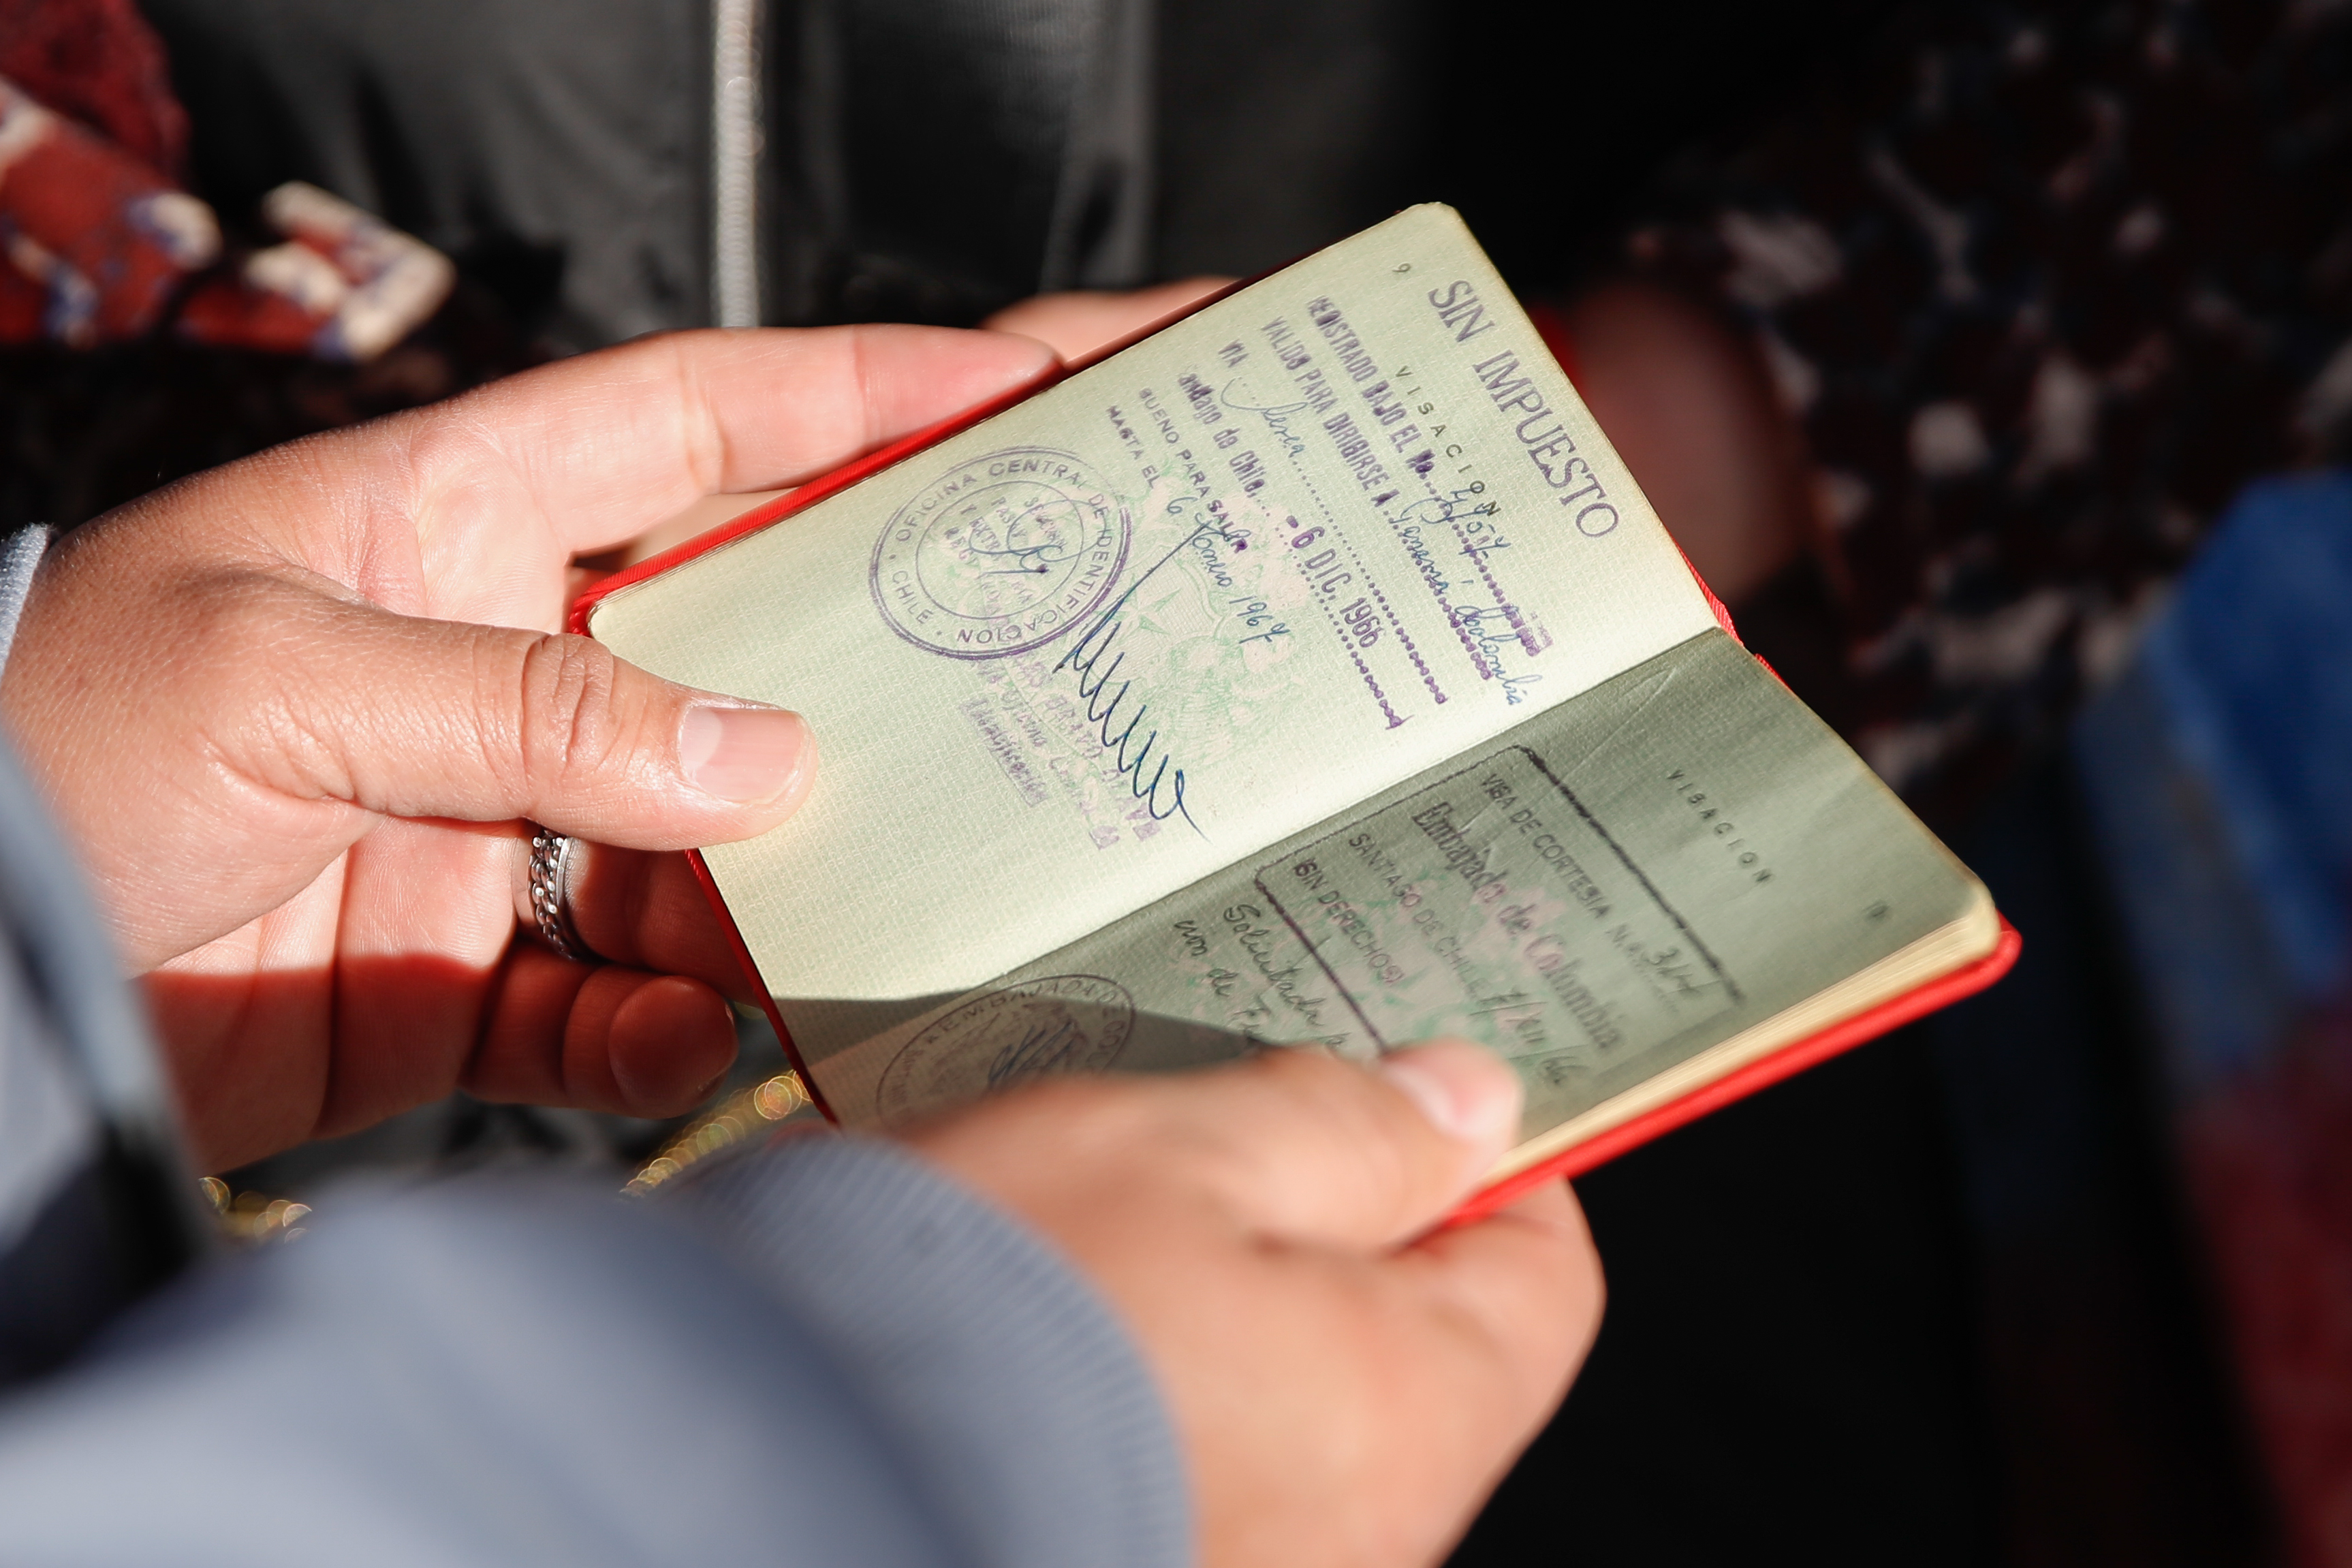 9
SIN IMPUESTO
VISACION
REGISTRADO BAJO EL No.
VALIDO PARA DIRIGIRSE A Panamá, Colombia
VIA Aerea
Santiago de Chile, - 6 DIC. 1966
BUENO PARA SALIR
HASTA EL 6 Enero 1967
OFICINA CENTRAL DE IDENTIFICACION
CHILE
LUIS BRAVO
Identificación
10
VISACION
VISA DE CORTESIA No. 314
Embajada de Colombia
SANTIAGO DE CHILE 7/XII/66
(SIN DERECHOS)
Solicitada
de
EMBAJADA DE